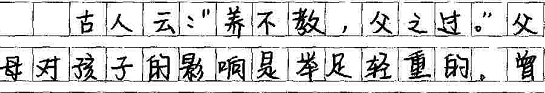 古人云:"养不教,父之过。"父
母对孩子的影响是举足轻重的。曾